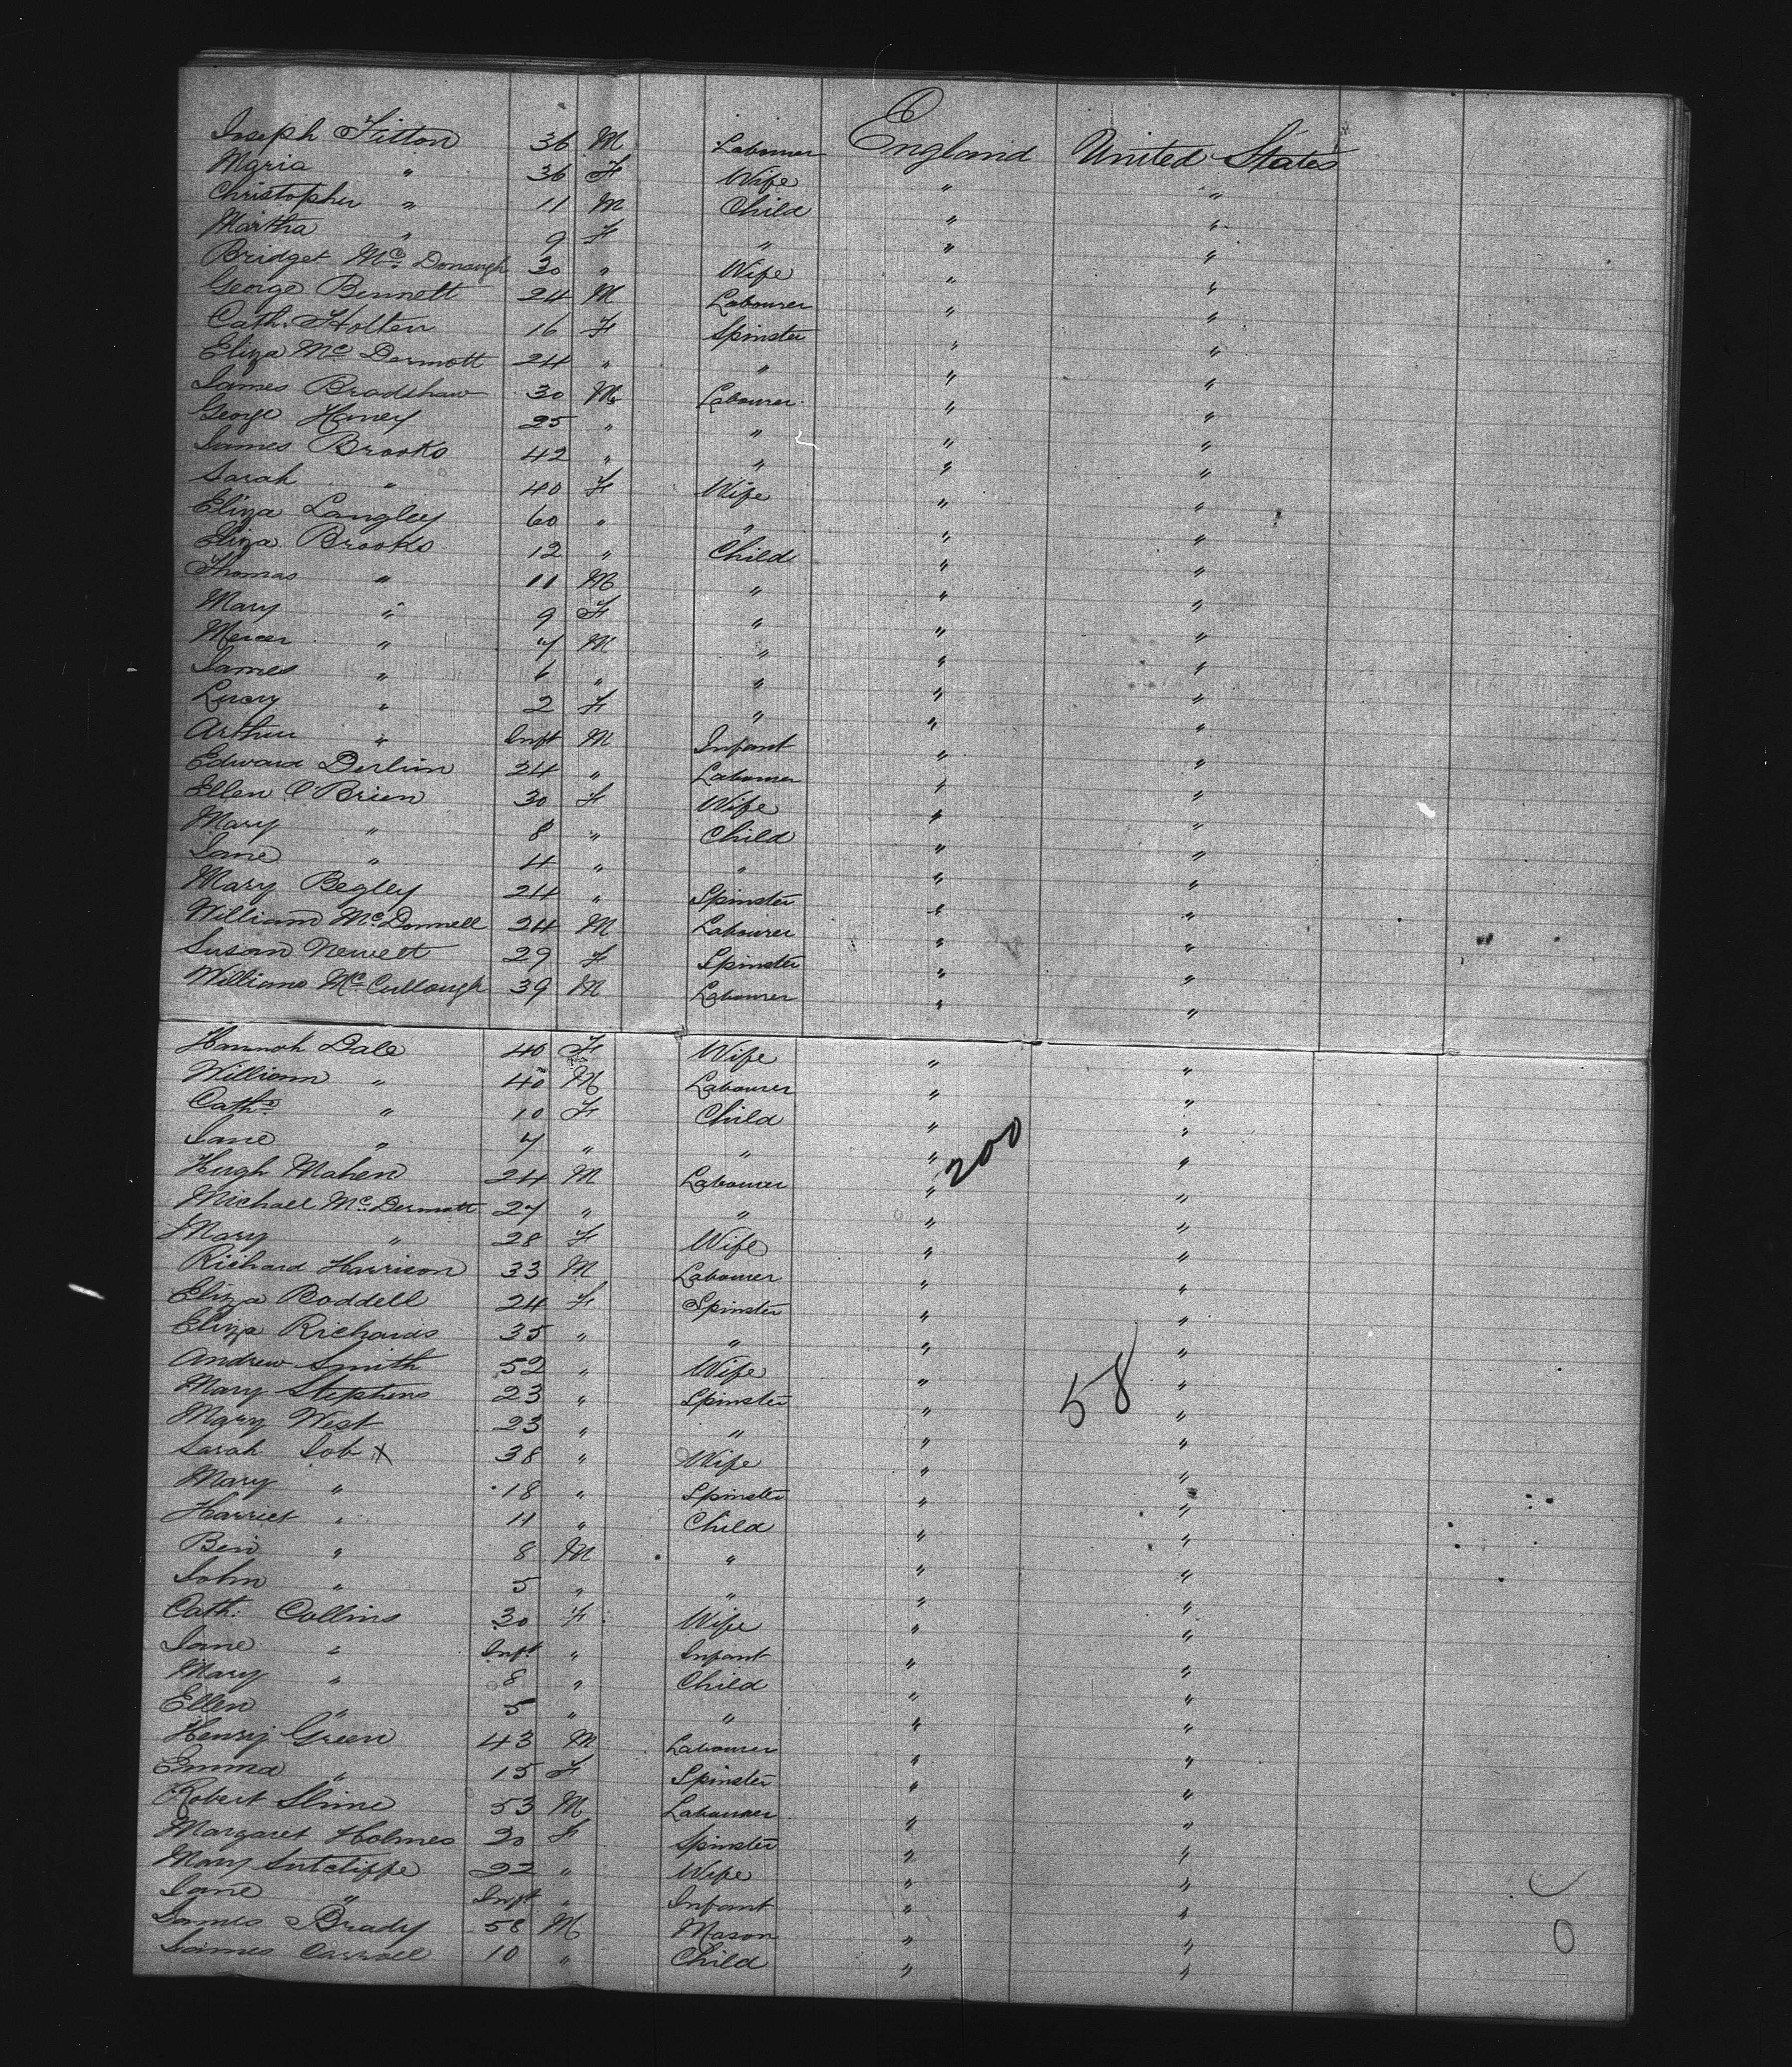 Joseph Fitton 36 M Labourer England United States
Maria " 36 F Wife " "
Christopher " 11 M Child " "
Martha " 9 F " " "
Bridget McDonough 30 " Wife " "
George Bennett 24 M Labourer " "
Cath. Holten 16 F Spinster " "
Eliza McDermott 24 " " " "
James Bradshaw 30 M Labourer " "
George Haney 25 " " " "
James Brooks 42 " " " "
Sarah " 40 F Wife " "
Eliza Langley 60 " " " "
Eliza Brooks 12 " Child " "
Thomas " 11 M " " "
Mary " 9 F " " "
Mercer " 7 M " " "
James " 6 " " " "
Lucry " 2 F " " "
Arthur " Inft M Infant " "
Edward Derlin 24 " Labourer " "
Ellen O'Brien 30 F Wife " "
Mary " 8 " Child " "
Jane " 4 " " " "
Mary Begley 24 " Spinster " "
William McDonnell 24 M Labourer " "
Susan Newett 29 F Spinster " "
William McCullough 39 M Labourer " "
Hannah Dale 40 F Wife " "
William " 40 M Labourer " "
Cath. " 10 F Child " "
Jane " 7 " " " "
200
Hugh Mahen 24 M Labourer " "
Michael McDermott 27 " " " "
Mary " 28 F Wife " "
Richard Harrison 33 M Labourer " "
Eliza Boddell 24 F Spinster " "
Eliza Richards 35 " " " "
Andrew Smith 52 " Wife " "
58
Mary Stephens 23 " Spinster " "
Mary West 23 " " " "
Sarah Job X 38 " Wife " "
Mary " 18 " Spinster " "
Harriet " 11 " Child " "
Ben " 8 M " " "
John " 5 " " " "
Cath. Collins 30 F Wife " "
Jane " Inft " Infant " "
Mary " 8 " Child " "
Ellen " 5 " " " "
Henry Green 43 M Labourer " "
Emma " 15 F Spinster " "
Robert Slime 53 M Labourer " "
Margaret Holmes 20 F Spinster " "
Mary Sutcliffe 22 " Wife " "
Jane " Inft " Infant " "
James Brady 58 M Mason " "
James Carroll 10 " Child " "